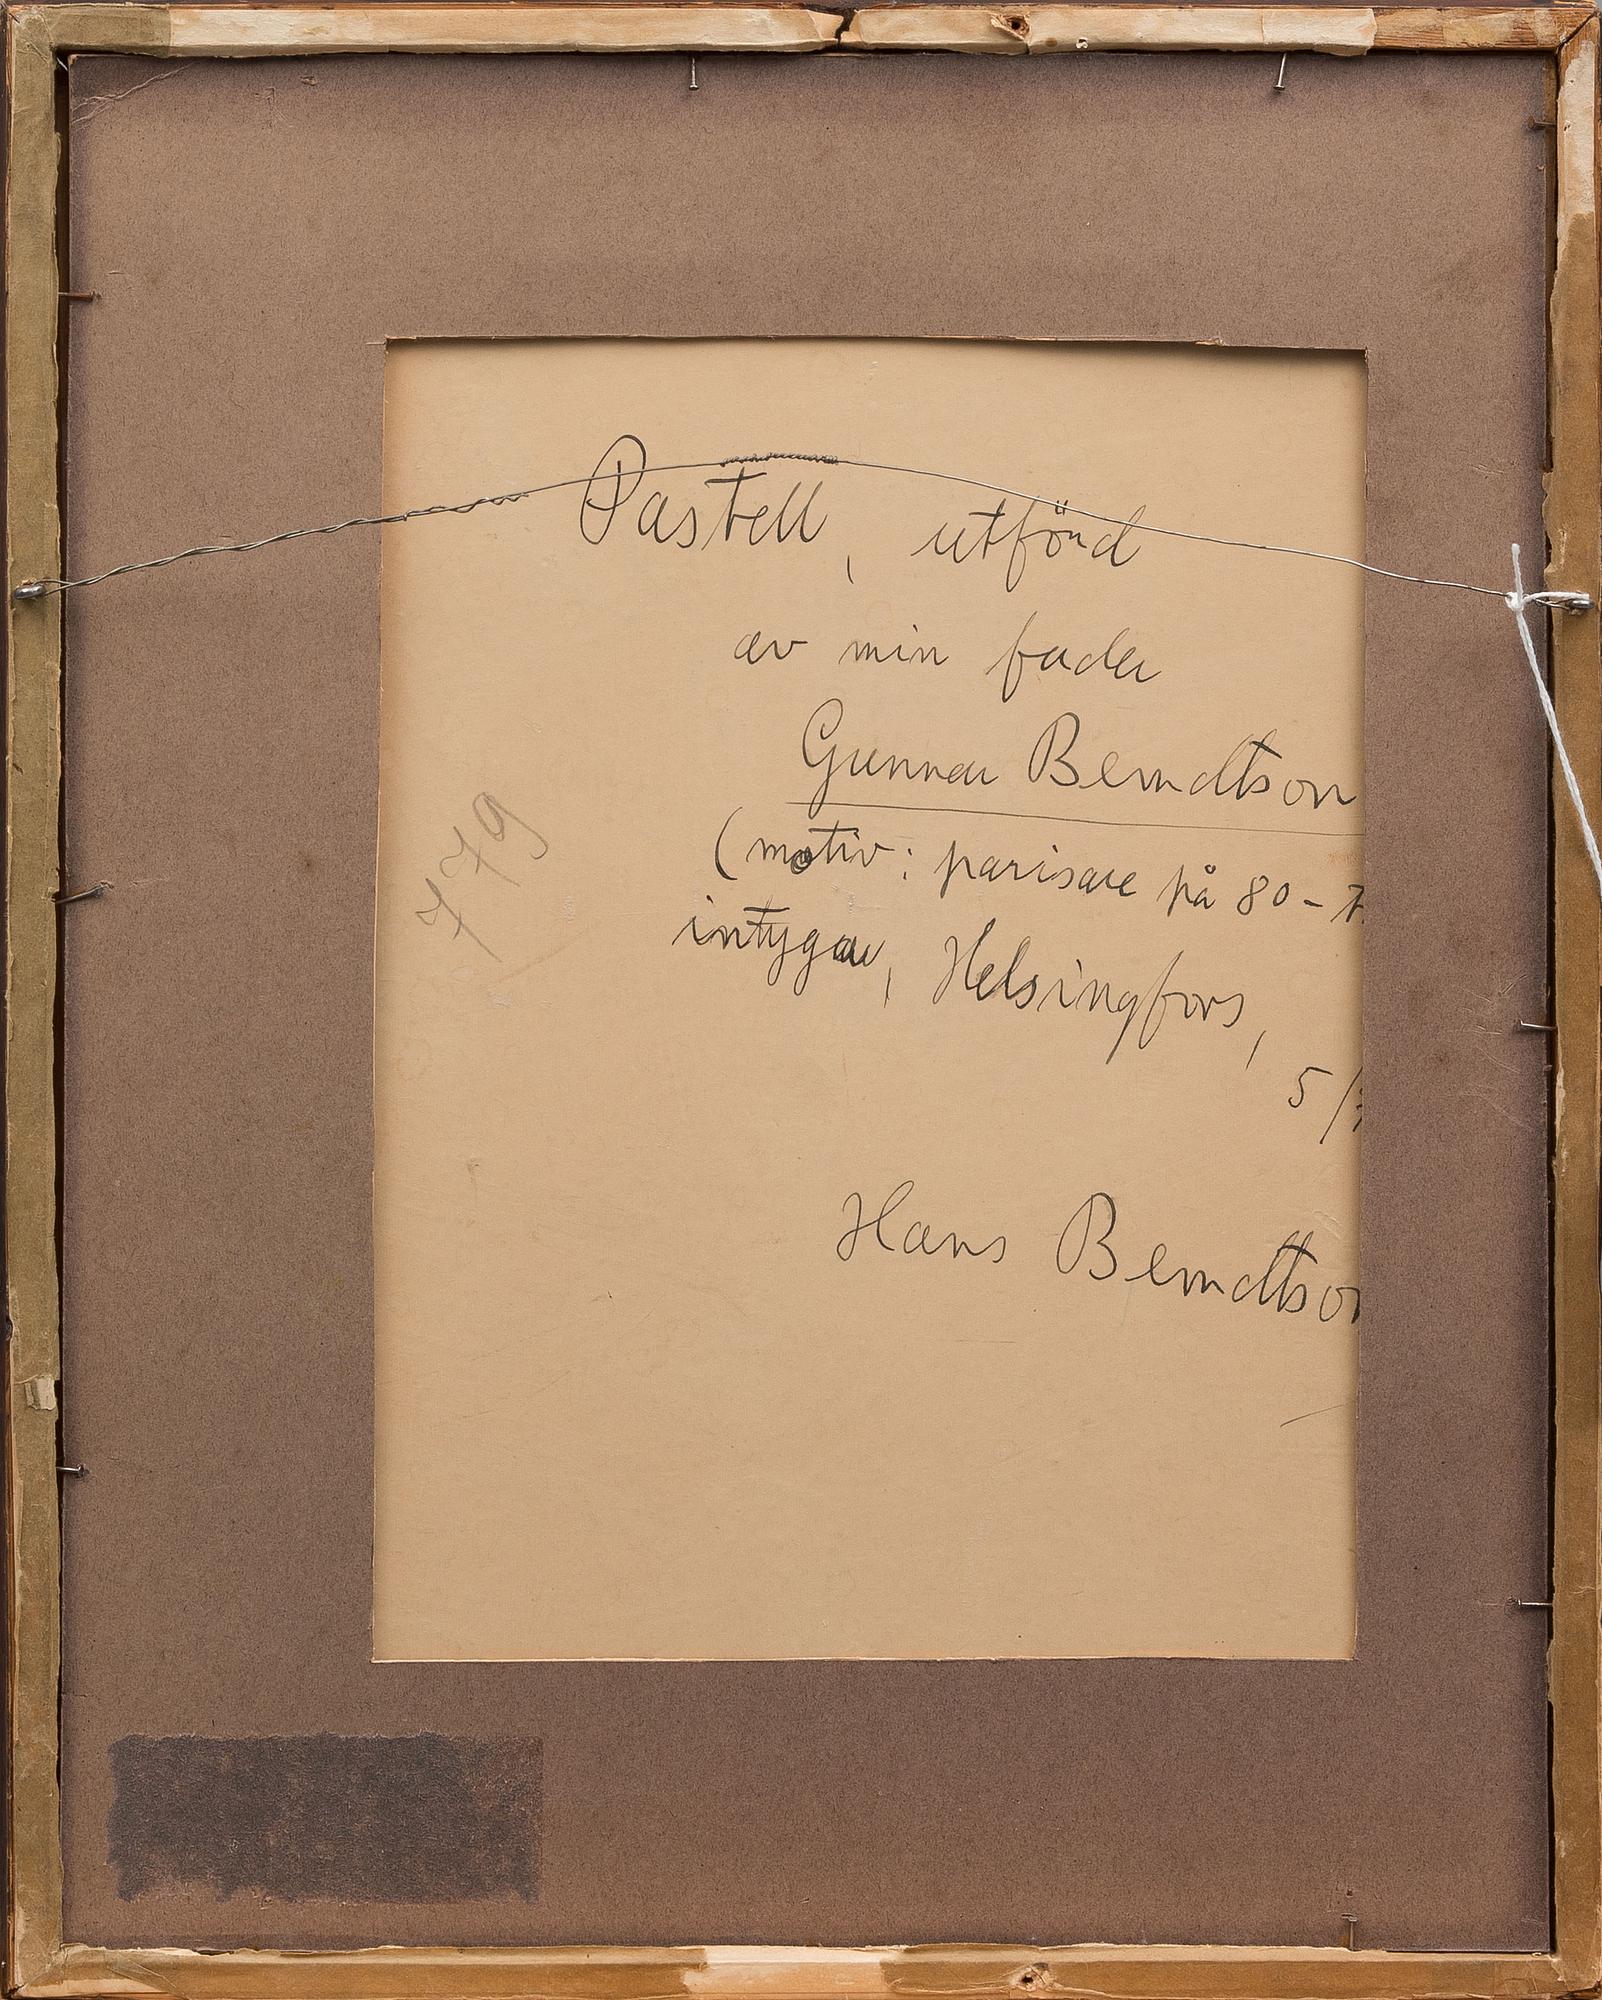 Pastell, utförd
av min fader
Gunnar Berndtson
(motiv: parisare på 80-t
intygar, Helsingfors,
5/
Hans Berndtson
779